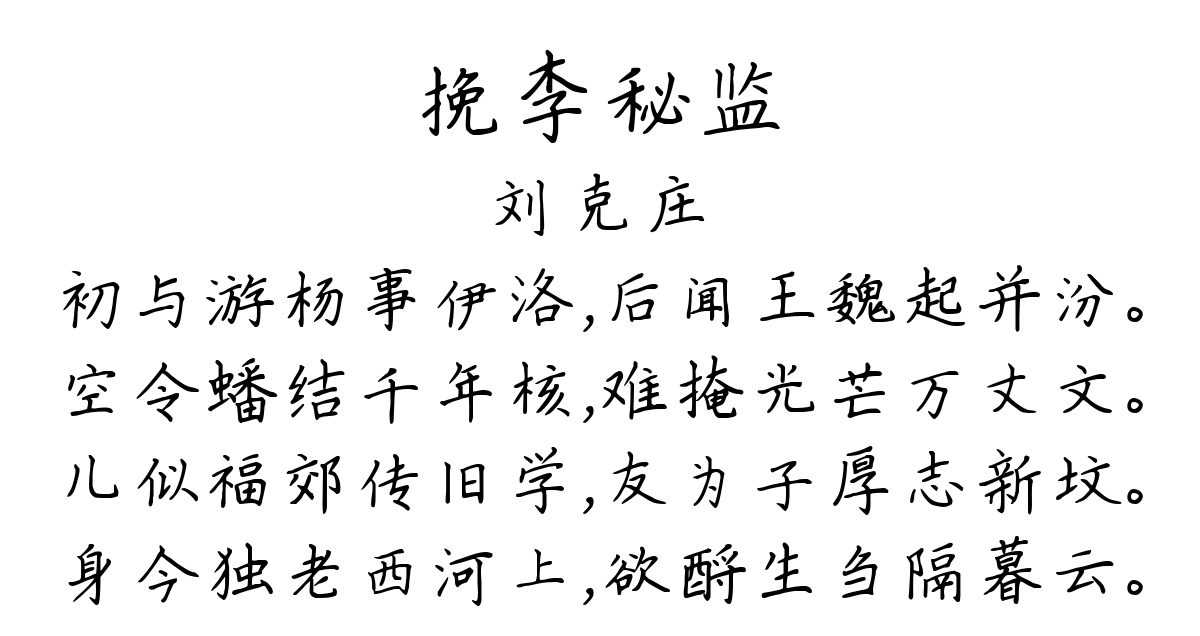 挽李秘监
刘克庄
初与游杨事伊洛,后闻王魏起并汾。
空令蟠结千年核,难掩光芒万丈文。
儿似福郊传旧学,友为子厚志新坟。
身今独老西河上,欲酹生刍隔暮云。